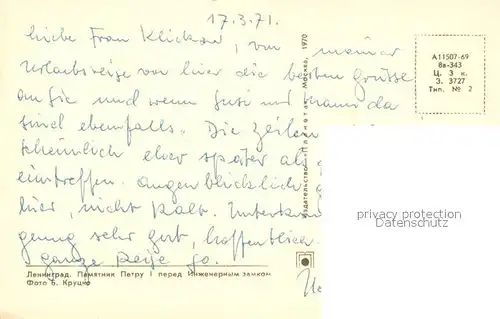 17.3.71.
Liebe Frau Klickow, von meiner
Urlaubsreise von hier die besten Grüsse
an Sie und wenn Susi und da
sind ebenfalls. Die Zeilen
eher später als
eintreffen. Augenblicklich
hier, nicht kalt. Unterkun
gung sehr gut, hoffentlich
ganze Reise so.
Издательство „Планета“. Москва, 1970
А11507-69
8в-343
Ц. 3 к.
З. 3727
Тип. № 2
privacy protection
Datenschutz
Ленинград. Памятник Петру I перед Инженерным замком
Фото Б. Круцко